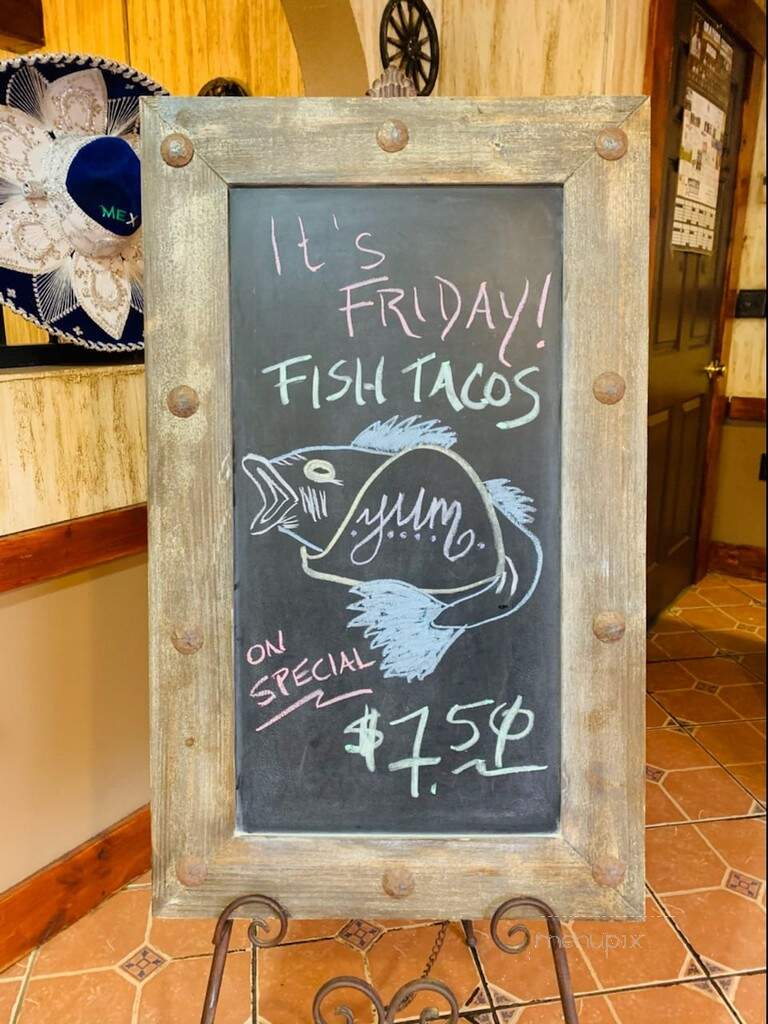 It's
FRIDAY!
FISH TACOS
yum
ON
SPECIAL
$7.50
MEX
menupix